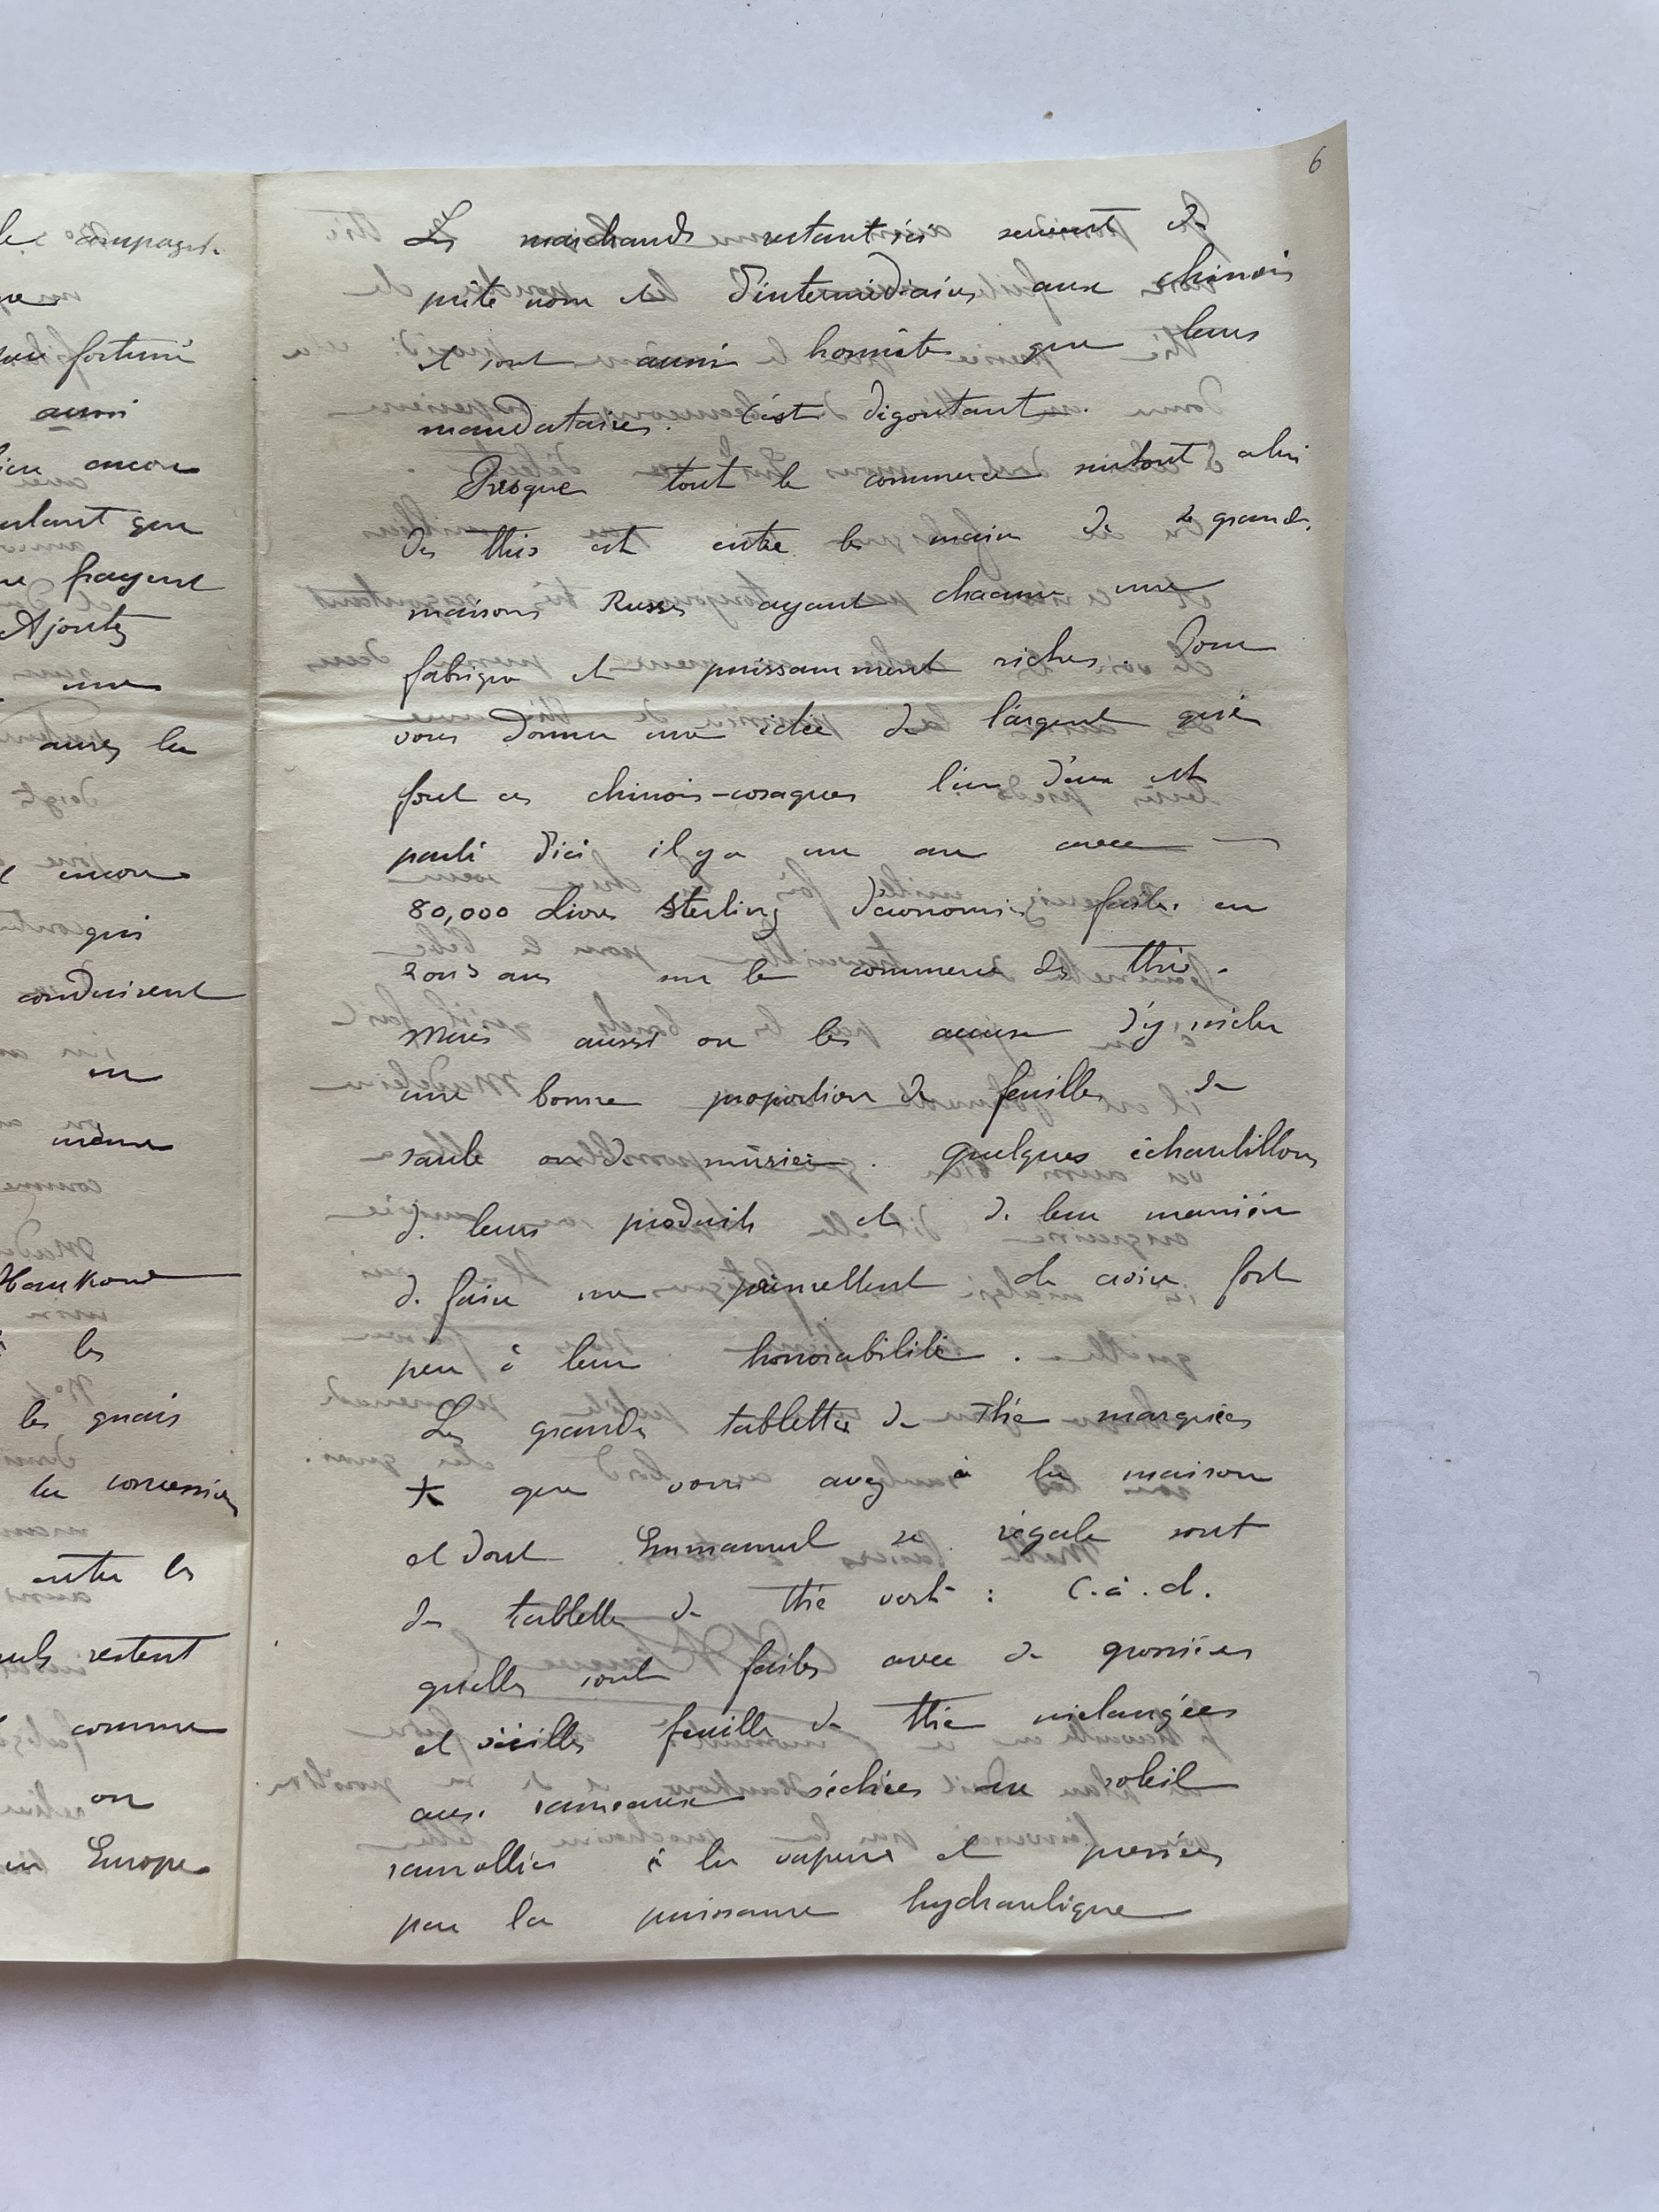 le compagn.
peu fortuné
aussi
bien encore
autant que
ne payent
Ajoutez
une
aurez la
encore
qui
conduisent
en
même
Hankow
les
les quais
la concession
entre les
restent
comme
on
en Europe
6
Les marchands restant ici servent de
prête nom et d'intermédiaires aux chinois
et sont aussi honnêtes que leurs
mandataires. C'est digoutant.
Presque tout le commerce surtout celui
des thés est entre les mains de 2 grandes
maisons Russes ayant chacune une
fabrique et puissamment riches. Pour
vous donner une idée de l'argent que
font ces chinois-cosaques l'un d'eux est
parti d'ici il y a un an avec
80,000 Livres Sterling d'économies faites en
2 ou 3 ans sur le commerce des thés.
Mais aussi on les accuse d'y mêler
une bonne proportion de feuilles de
saule ou de mûrier. quelques échantillons
de leurs produits et de leur manière
de faire me permettent de croire fort
peu à leur honorabilité.
Les grandes tablettes de Thé marquées
* que vous avez à la maison
et dont Emmanuel se régale sont
des tablettes de thé vert : C.à.d.
quelles sont faites avec de grossières
et vieilles feuilles de thé mélangées
aux rameaux séchées au soleil
ramollies à la vapeur et pressées
par la puissance hydraulique